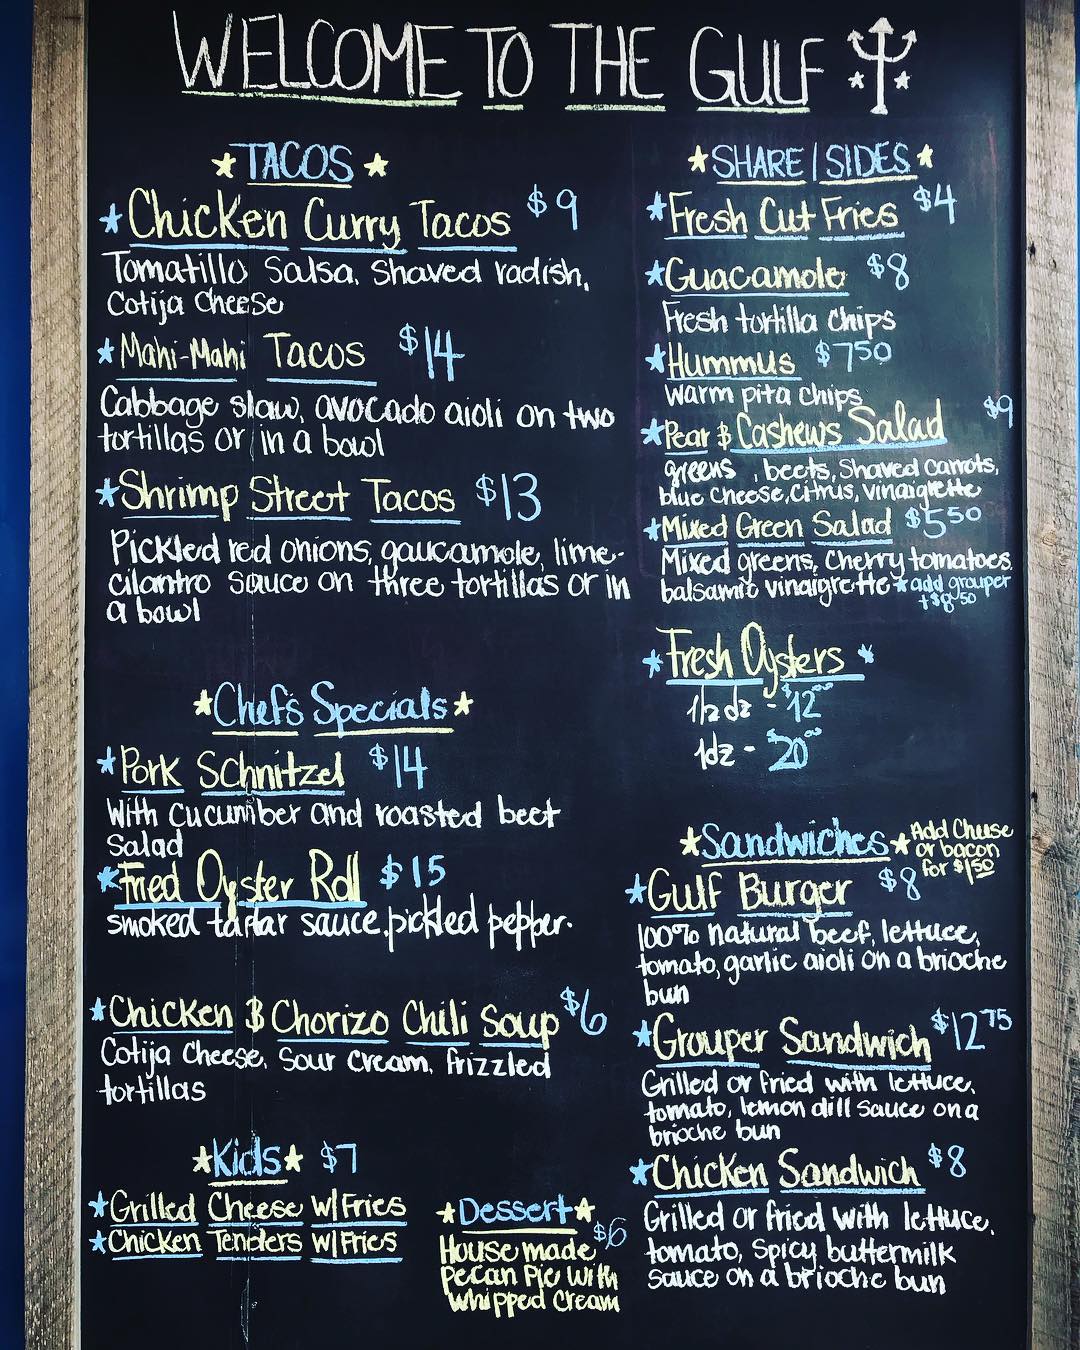 WELCOME TO THE GULF
★TACOS★
★Chicken Curry Tacos $9
Tomatillo Salsa, Shaved radish,
Cotija Cheese
★Mahi-Mahi Tacos $14
Cabbage slaw, avocado aioli on two
tortillas or in a bowl
★Shrimp Street Tacos $13
Pickled red onions, gaucamole, lime-
cilantro sauce on three tortillas or in
a bowl
★Chef's Specials★
★Pork Schnitzel $14
With cucumber and roasted beet
Salad
★Fried Oyster Roll $15
smoked tartar sauce, pickled pepper.
★Chicken & Chorizo Chili Soup $6
Cotija Cheese, Sour cream, frizzled
tortillas
★Kids★ $7
★Grilled Cheese w/Fries
★Chicken Tenders w/Fries
★Dessert★
$6
House made
Pecan Pie with
Whipped Cream
★SHARE|SIDES★
★Fresh Cut Fries $4
★Guacamole $8
Fresh tortilla chips
★Hummus $7.50
warm pita chips
★Pear & Cashews Salad $9
greens, beets, Shaved carrots,
blue cheese, citrus, vinaigrette
★Mixed Green Salad $5.50
Mixed greens, Cherry tomatoes.
balsamic vinaigrette ★add grouper
+$8.50
★Fresh Oysters★
1/2 dz - $12.00
1dz - $20.00
★Sandwiches★ Add Cheese
or bacon
for $1.50
★Gulf Burger $8
100% natural beef, lettuce,
tomato, garlic aioli on a brioche
bun
★Grouper Sandwich $12.75
Grilled or fried with lettuce,
tomato, lemon dill sauce on a
brioche bun
★Chicken Sandwich $8
Grilled or fried with lettuce,
tomato, spicy buttermilk
sauce on a brioche bun